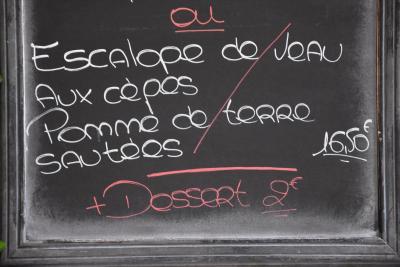 ou
Escalope de veau
aux cèpes
Pomme de terre
sautées 16,50€
+ Dessert 2€